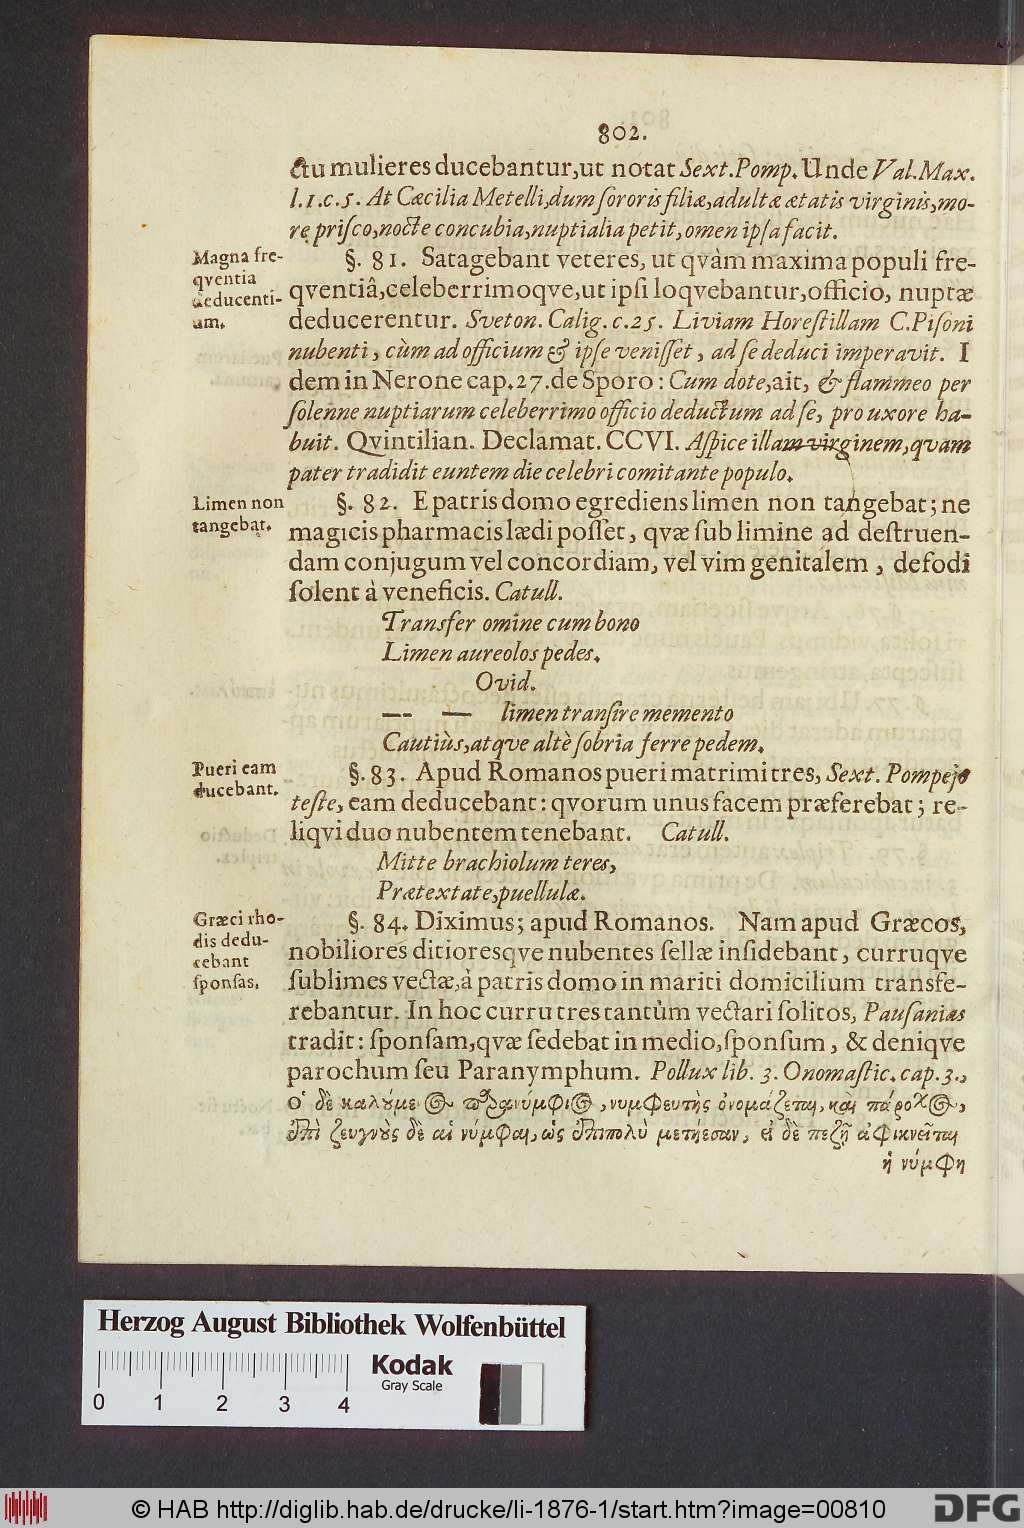 802.
ctu mulieres ducebantur, ut notat Sext. Pomp. Unde Val. Max.
l.1.c.5. At Cæcilia Metelli, dum ſororis filiæ, adultæ ætatis virginis, mo-
re priſco, nocte concubia, nuptialia petit, omen ipſa facit.
Magna fre-
qventia
deducenti-
um.
§. 81. Satagebant veteres, ut qvàm maxima populi fre-
qventiâ, celeberrimoqve, ut ipſi loqvebantur, officio, nuptæ
deducerentur. Sveton. Calig. c. 25. Liviam Horeſtillam C. Piſoni
nubenti, cùm ad officium & ipſe veniſſet, ad ſe deduci imperavit. I
dem in Nerone cap. 27. de Sporo: Cum dote, ait, & flammeo per
ſolenne nuptiarum celeberrimo officio deductum ad ſe, pro uxore ha-
buit. Qvintilian. Declamat. CCVI. Aſpice illam virginem, qvam
pater tradidit euntem die celebri comitante populo.
Limen non
tangebat.
§. 82. E patris domo egrediens limen non tangebat; ne
magicis pharmacis lædi poſſet, qvæ ſub limine ad deſtruen-
dam conjugum vel concordiam, vel vim genitalem, defodi
ſolent à veneficis. Catull.
Transfer omine cum bono
Limen aureolos pedes.
Ovid.
—— — limen tranſire memento
Cautiùs, atqve altè ſobria ferre pedem.
Pueri eam
ducebant.
§. 83. Apud Romanos pueri matrimi tres, Sext. Pompejo
teſte, eam deducebant: qvorum unus facem præferebat; re-
liqvi duo nubentem tenebant. Catull.
Mitte brachiolum teres,
Prætextate, puellulæ.
Græci rho-
dis dedu-
cebant
ſponſas.
§. 84. Diximus; apud Romanos. Nam apud Græcos,
nobiliores ditioresqve nubentes ſellæ inſidebant, curruqve
ſublimes vectæ, à patris domo in mariti domicilium transfe-
rebantur. In hoc curru tres tantùm vectari ſolitos, Pauſanias
tradit: ſponſam, qvæ ſedebat in medio, ſponſum, & deniqve
parochum ſeu Paranymphum. Pollux lib. 3. Onomaſtic. cap. 3.,
Ὁ δὲ καλούμενος παράνυμφιος, νυμφευτὴς ὀνομάζεται, καὶ πάροχος,
ἐπὶ ζευγνὺς δὲ αἱ νύμφαι, ὡς ἐπιπολὺ μετήεσαν, εἰ δὲ πεζῇ ἀφικνεῖται
ἡ νύμφη
Herzog August Bibliothek Wolfenbüttel
0 1 2 3 4
Kodak
Gray Scale
© HAB http://diglib.hab.de/drucke/li-1876-1/start.htm?image=00810
DFG